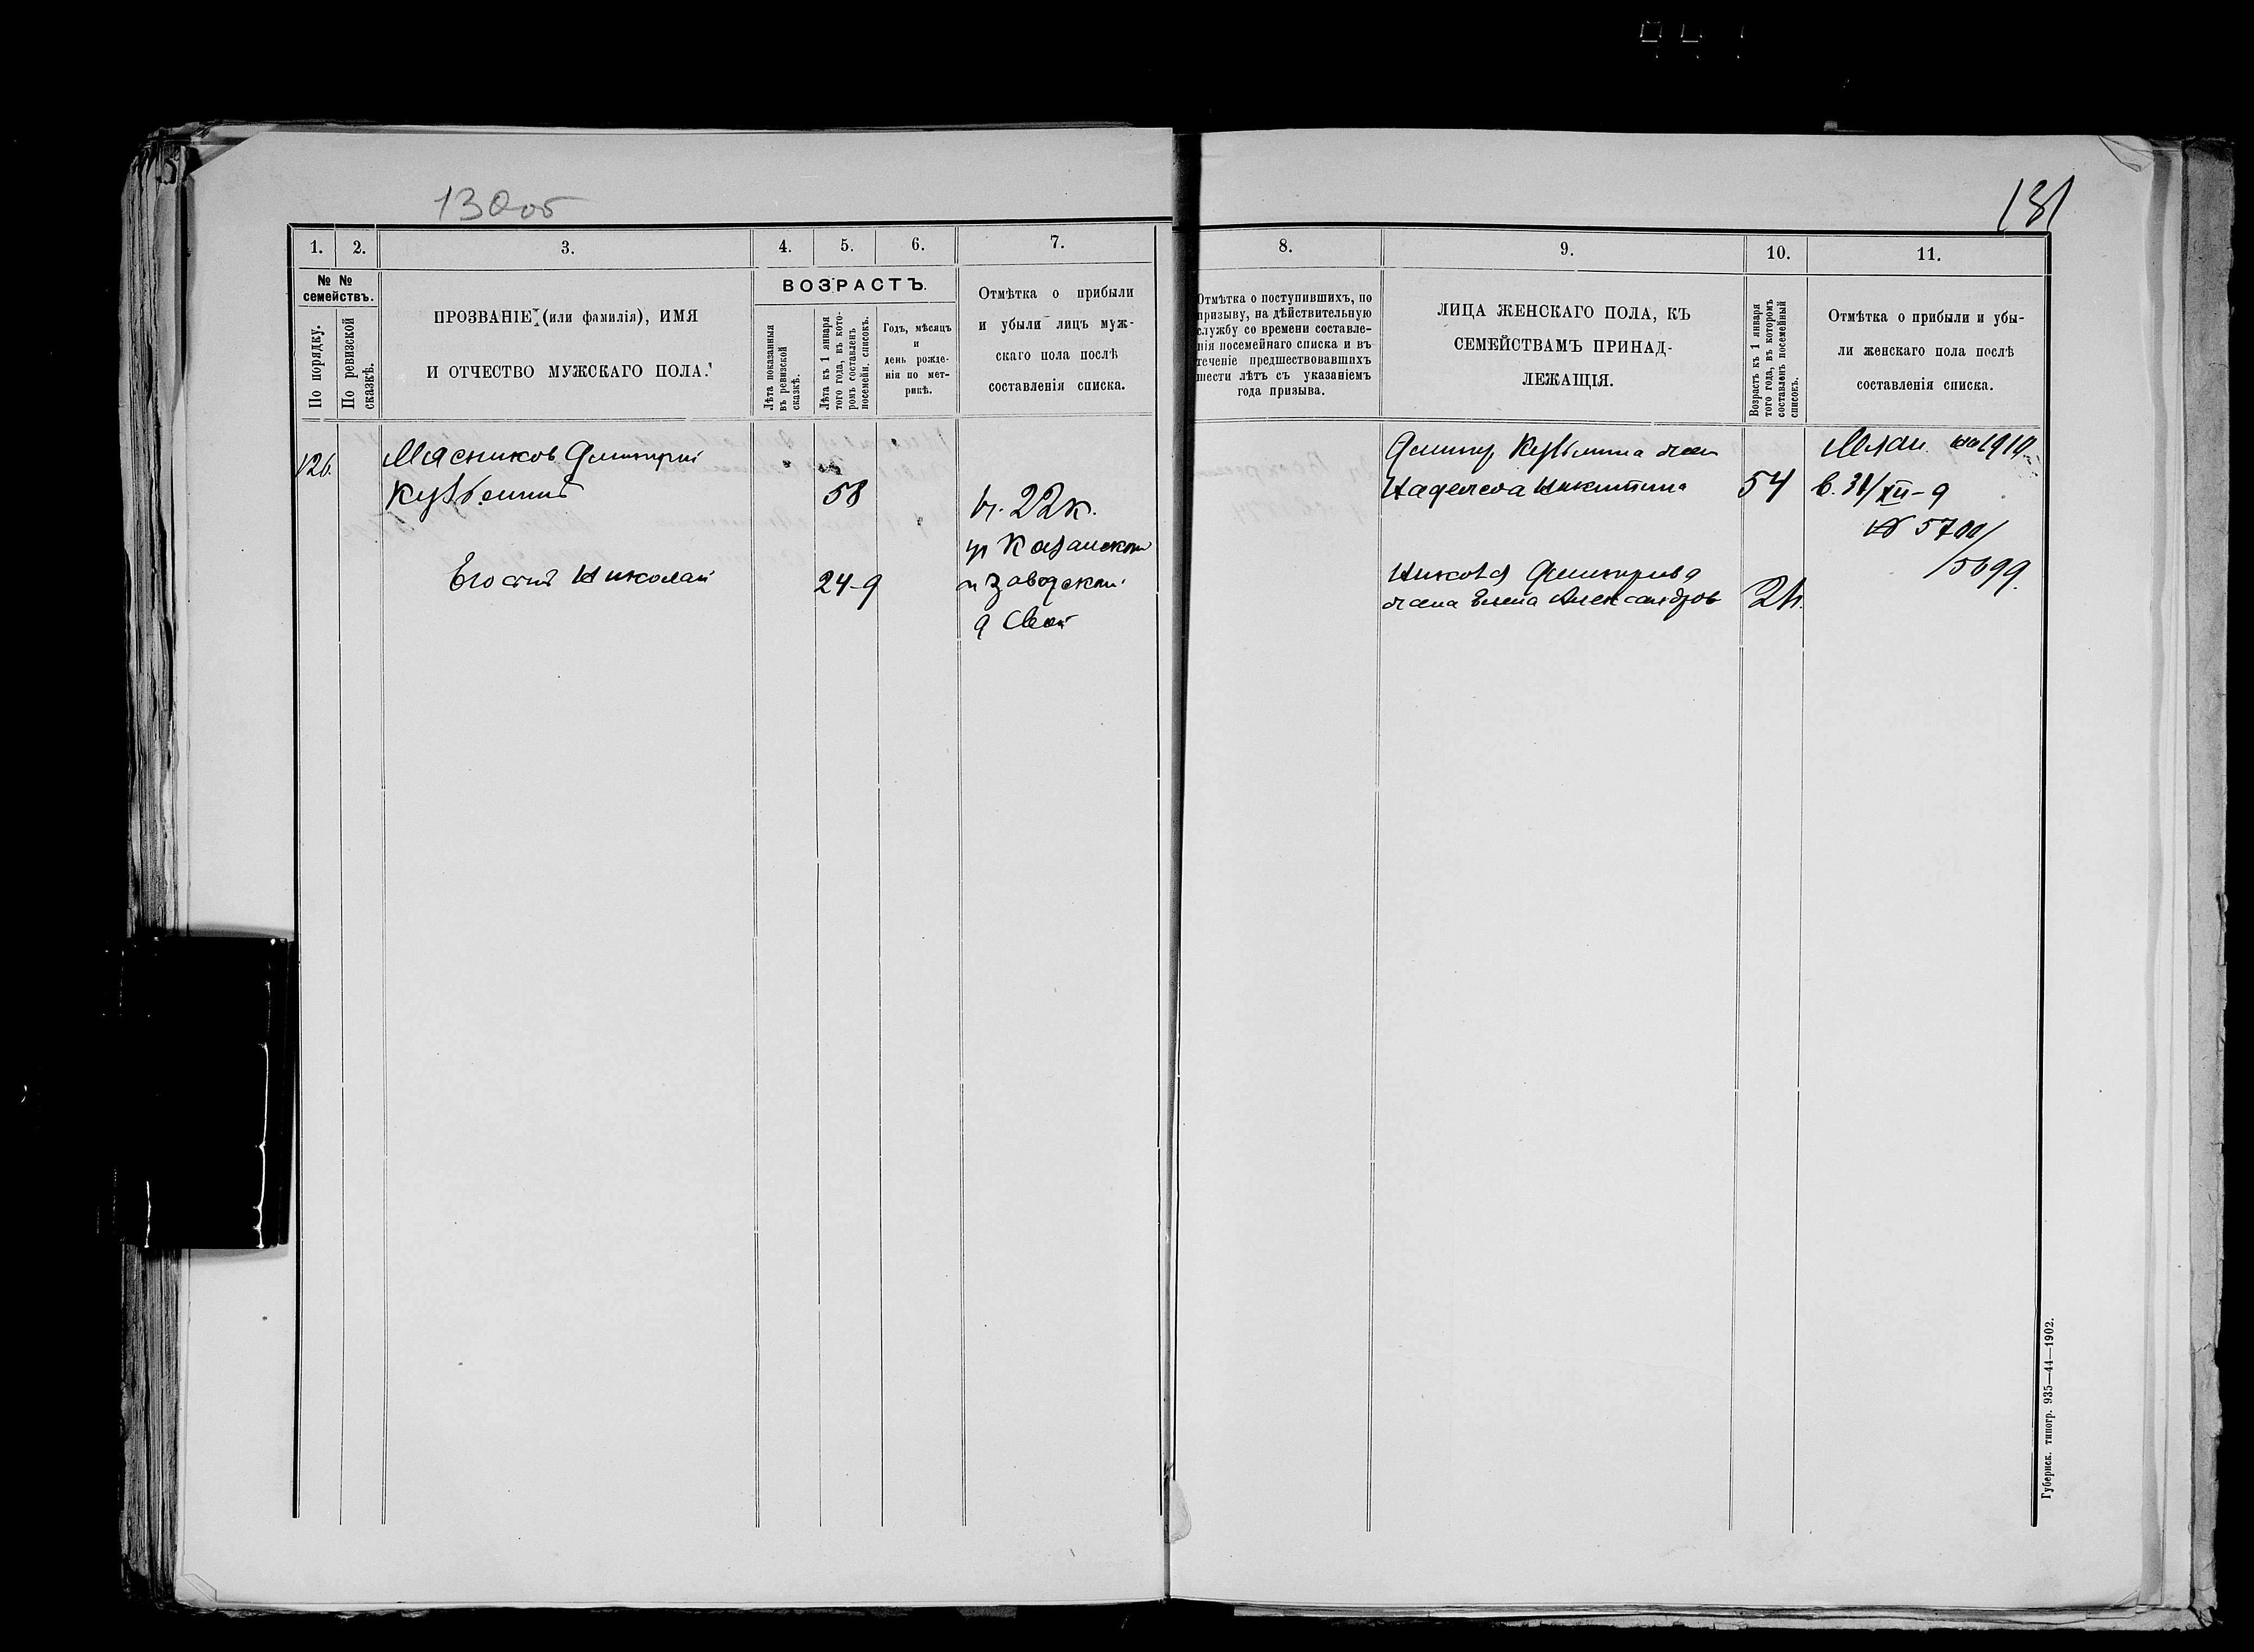 130об
131
1. 2. 3. 4. 5. 6. 7.
№ № семействъ.
По порядку.
По ревизской сказкѣ.
ПРОЗВАНІЕ (или фамилія), ИМЯ
И ОТЧЕСТВО МУЖСКАГО ПОЛА.
ВОЗРАСТЪ.
Лѣта показанныя
въ ревизской
сказкѣ.
Лѣта къ 1 января
того года, въ кото-
ромъ составленъ
посемейн. списокъ.
Годъ, мѣсяцъ
и
день рожде-
нія по мет-
рикѣ.
Отмѣтка о прибыли
и убыли лицъ муж-
скаго пола послѣ
составленія списка.
126.
Мясников Димитрий
Кузьминъ
58
Его сынъ Николай
24-9
22к.
Казанской
и Заводской
д Свой
8. 9. 10. 11.
Отмѣтка о поступившихъ, по
призыву, на дѣйствительную
службу со времени составле-
нія посемейнаго списка и въ
теченіе предшествовавшихъ
шести лѣтъ съ указаніемъ
года призыва.
ЛИЦА ЖЕНСКАГО ПОЛА, КЪ
СЕМЕЙСТВАМЪ ПРИНАД-
ЛЕЖАЩІЯ.
Возрастъ къ 1 января
того года, въ которомъ
составленъ посемейный
списокъ.
Отмѣтка о прибыли и убы-
ли женскаго пола послѣ
составленія списка.
Димитр Кузьмина жен
Надежда Никитина
54
Николая Димитриева
жена Елена Александров
1910
в. 31/XII-9
№ 5700/
/5699.
Губернск. типогр. 935—44—1902.